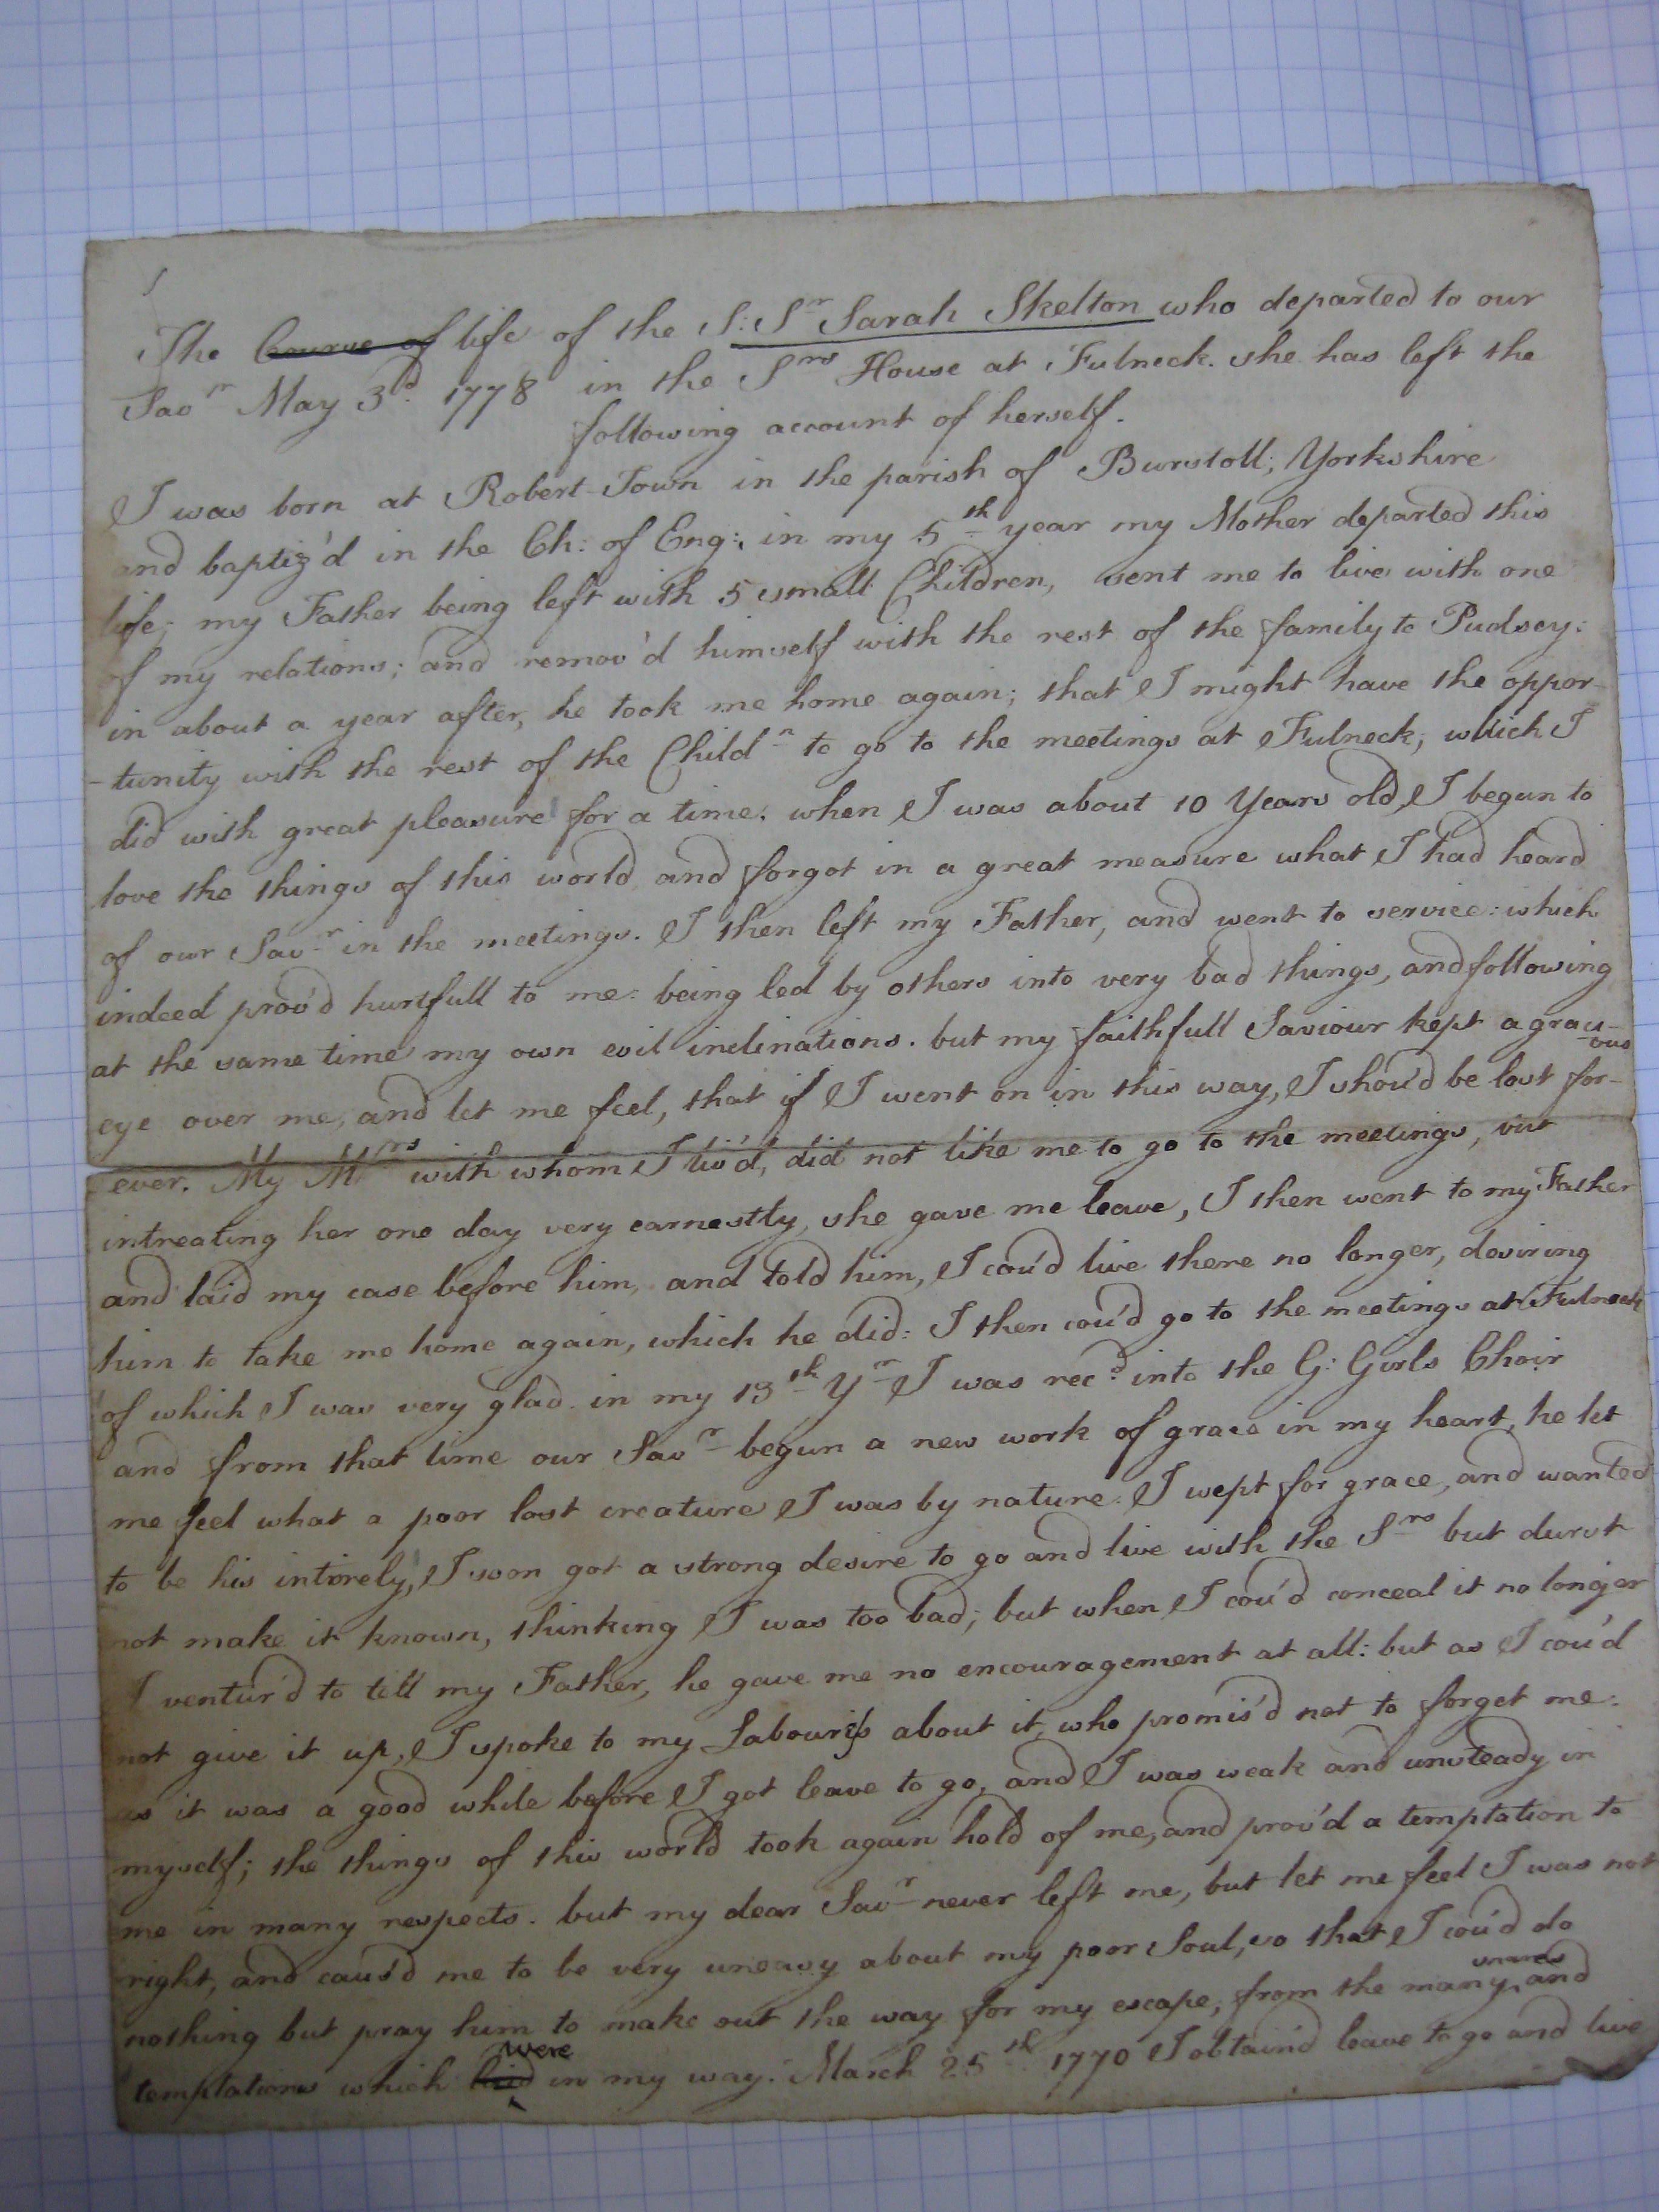 The Course of life of the S: Sr Sarah Skelton who departed to our
Savr May 3d. 1778 in the Srs House at Fulneck. she has left the
following account of herself.
I was born at Robert-Town in the parish of Burstoll; Yorkshire
and baptiz'd in the Ch: of Eng:, in my 5th year my Mother departed this
life; my Father being left with 5 small Children, sent me to live with one
of my relations; and remov'd himself with the rest of the family to Pudsey:
in about a year after, he took me home again; that I might have the oppor-
-tunity with the rest of the Childn to go to the meetings at Fulneck; which I
did with great pleasure for a time. when I was about 10 Years old, I begun to
love the things of this world and forgot in a great measure what I had heard
of our Savr in the meetings. I then left my Father, and went to service: which
indeed prov'd hurtfull to me: being led by others into very bad things, and following
at the same time my own evil inclinations. but my faithfull Saviour kept a graci-
-ous
eye over me, and let me feel, that if I went on in this way, I shou'd be lost for-
ever. My Mrs with whom I liv'd, did not like me to go to the meetings, but
intreating her one day very earnestly, she gave me leave, I then went to my Father
and laid my case before him, and told him, I cou'd live there no longer, desiring
him to take me home again, which he did: I then cou'd go to the meetings at Fulneck
of which I was very glad. in my 13th Yr I was recd: into the G: Girls Choir
and from that time our Savr begun a new work of grace in my heart, he let
me feel what a poor lost creature I was by nature. I wept for grace, and wanted
to be his intirely, I soon got a strong desire to go and live with the Srs but durst
not make it known, thinking I was too bad; but when I cou'd conceal it no longer
I ventur'd to tell my Father, he gave me no encouragement at all: but as I cou'd
not give it up, I spoke to my Labouress about it, who promis'd not to forget me.
as it was a good while before I got leave to go, and I was weak and unsteady in
myself; the things of this world took again hold of me, and prov'd a temptation to
me in many respects. but my dear Savr never left me, but let me feel I was not
right, and caus'd me to be very uneasy about my poor Soul, so that I cou'd do
nothing but pray him to make out the way for my escape, from the many snares and
temptations which laid were in my way. March 25th 1770 I obtain'd leave to go and live